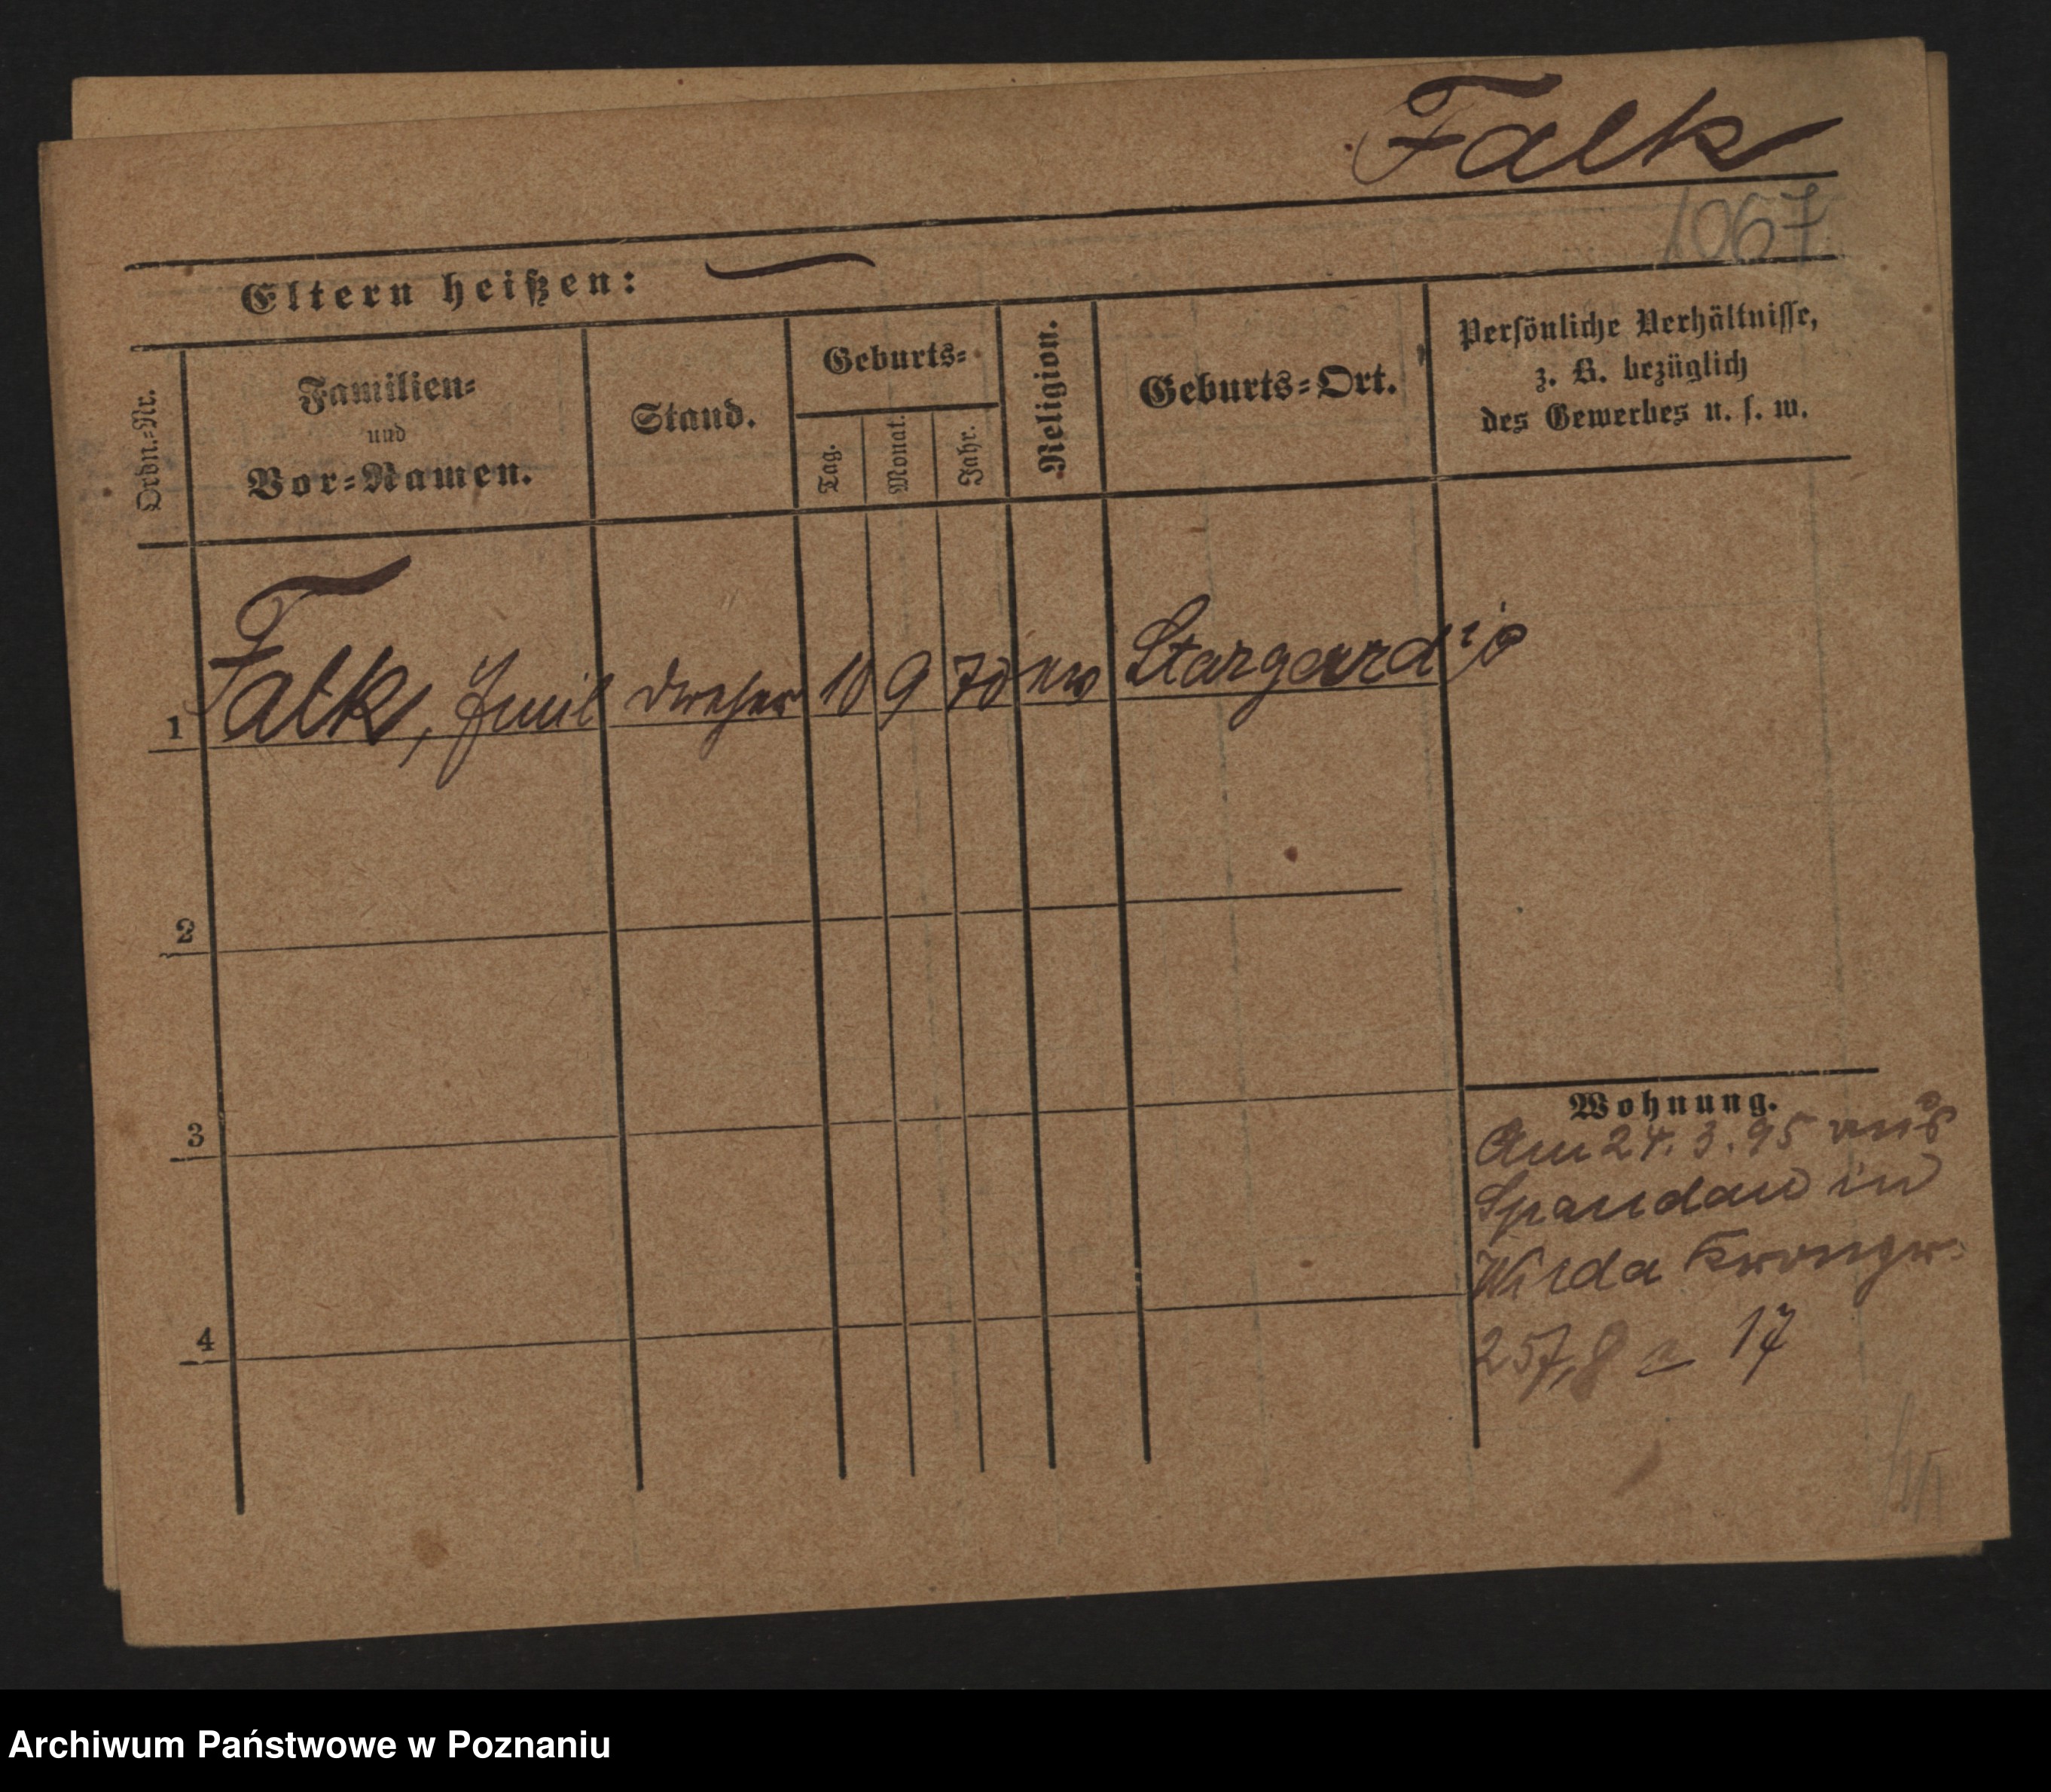 Falk
1067
Eltern heißen: —
Ordn.-Nr.
Familien-
und
Vor-Namen.
Stand.
Geburts-
Tag.
Monat.
Jahr.
Religion.
Geburts-Ort.
Persönliche Verhältnisse,
z. B. bezüglich
des Gewerbes u. s. w.
1 Falk, Emil Dreher 10 9 70 ev Stargard i/P
2
3
4
Wohnung.
Am 24. 3. 95 aus
Spandau in
Wilda Kronpr.
257,8 17
Archiwum Państwowe w Poznaniu